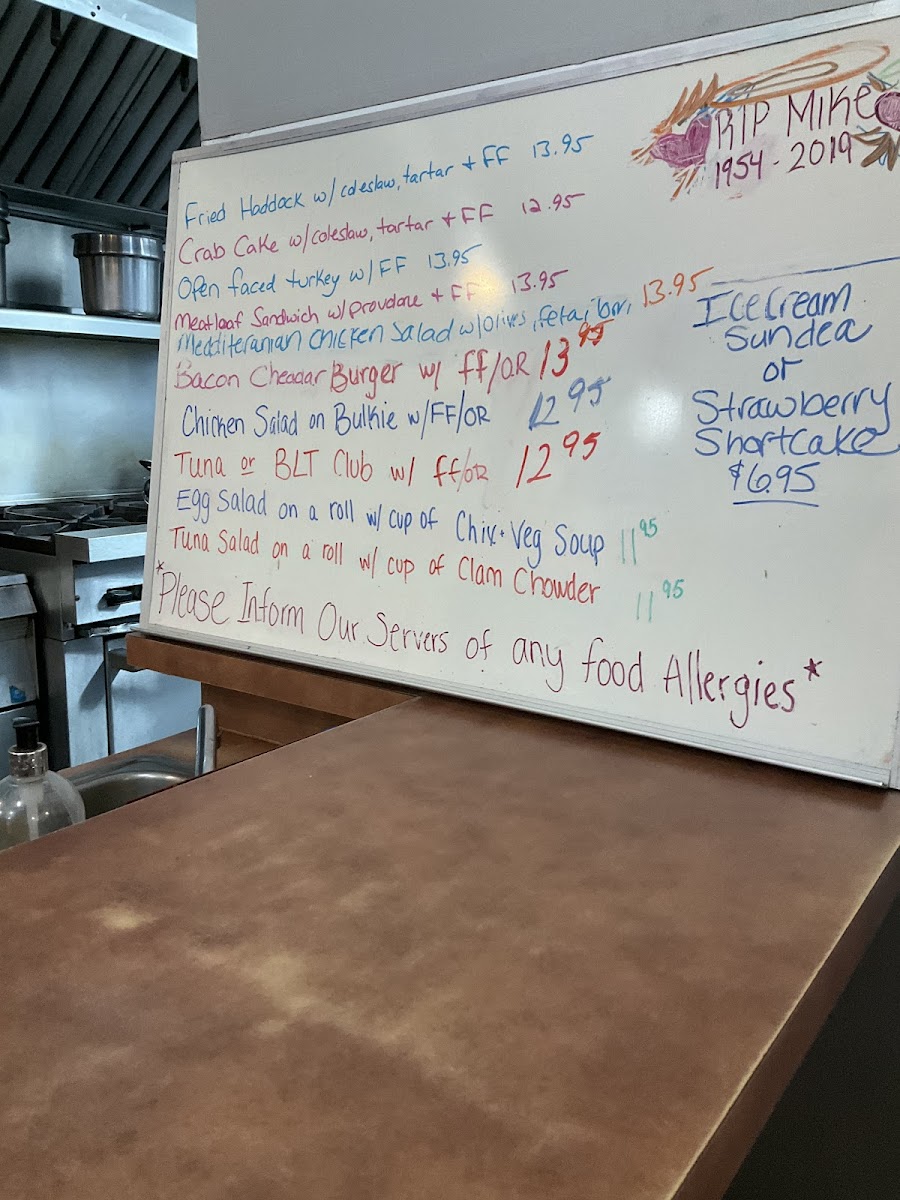 RIP MIKE
1954 - 2019
Fried Haddock w/ coleslaw, tartar + FF 13.95
Crab Cake w/coleslaw, tartar + FF 12.95
Open faced turkey w/ FF 13.95
Meatloaf Sandwich w/ provolone + FF 13.95
Mediteranian Chicken Salad w/olives, feta, 13.95
Bacon Cheddar Burger w/ ff/OR 13 95
Chicken Salad on Bulkie w/FF/OR 12 95
Tuna or BLT Club w/ ff/OR 12 95
Egg Salad on a roll w/ cup of Chix + Veg Soup 11 95
Tuna Salad on a roll w/ cup of Clam Chowder 11 95
*Please Inform Our Servers of any food Allergies*
Icecream
Sundea
or
Strawberry
Shortcake
$6.95